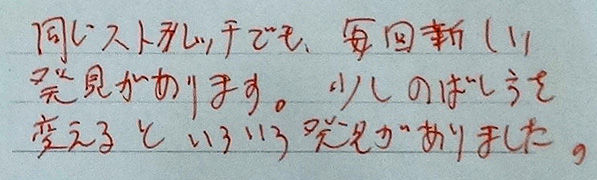 同じストレッチでも、毎回新しい
発見があります。少しのばしうを
変えるといろいろ発見がありました。